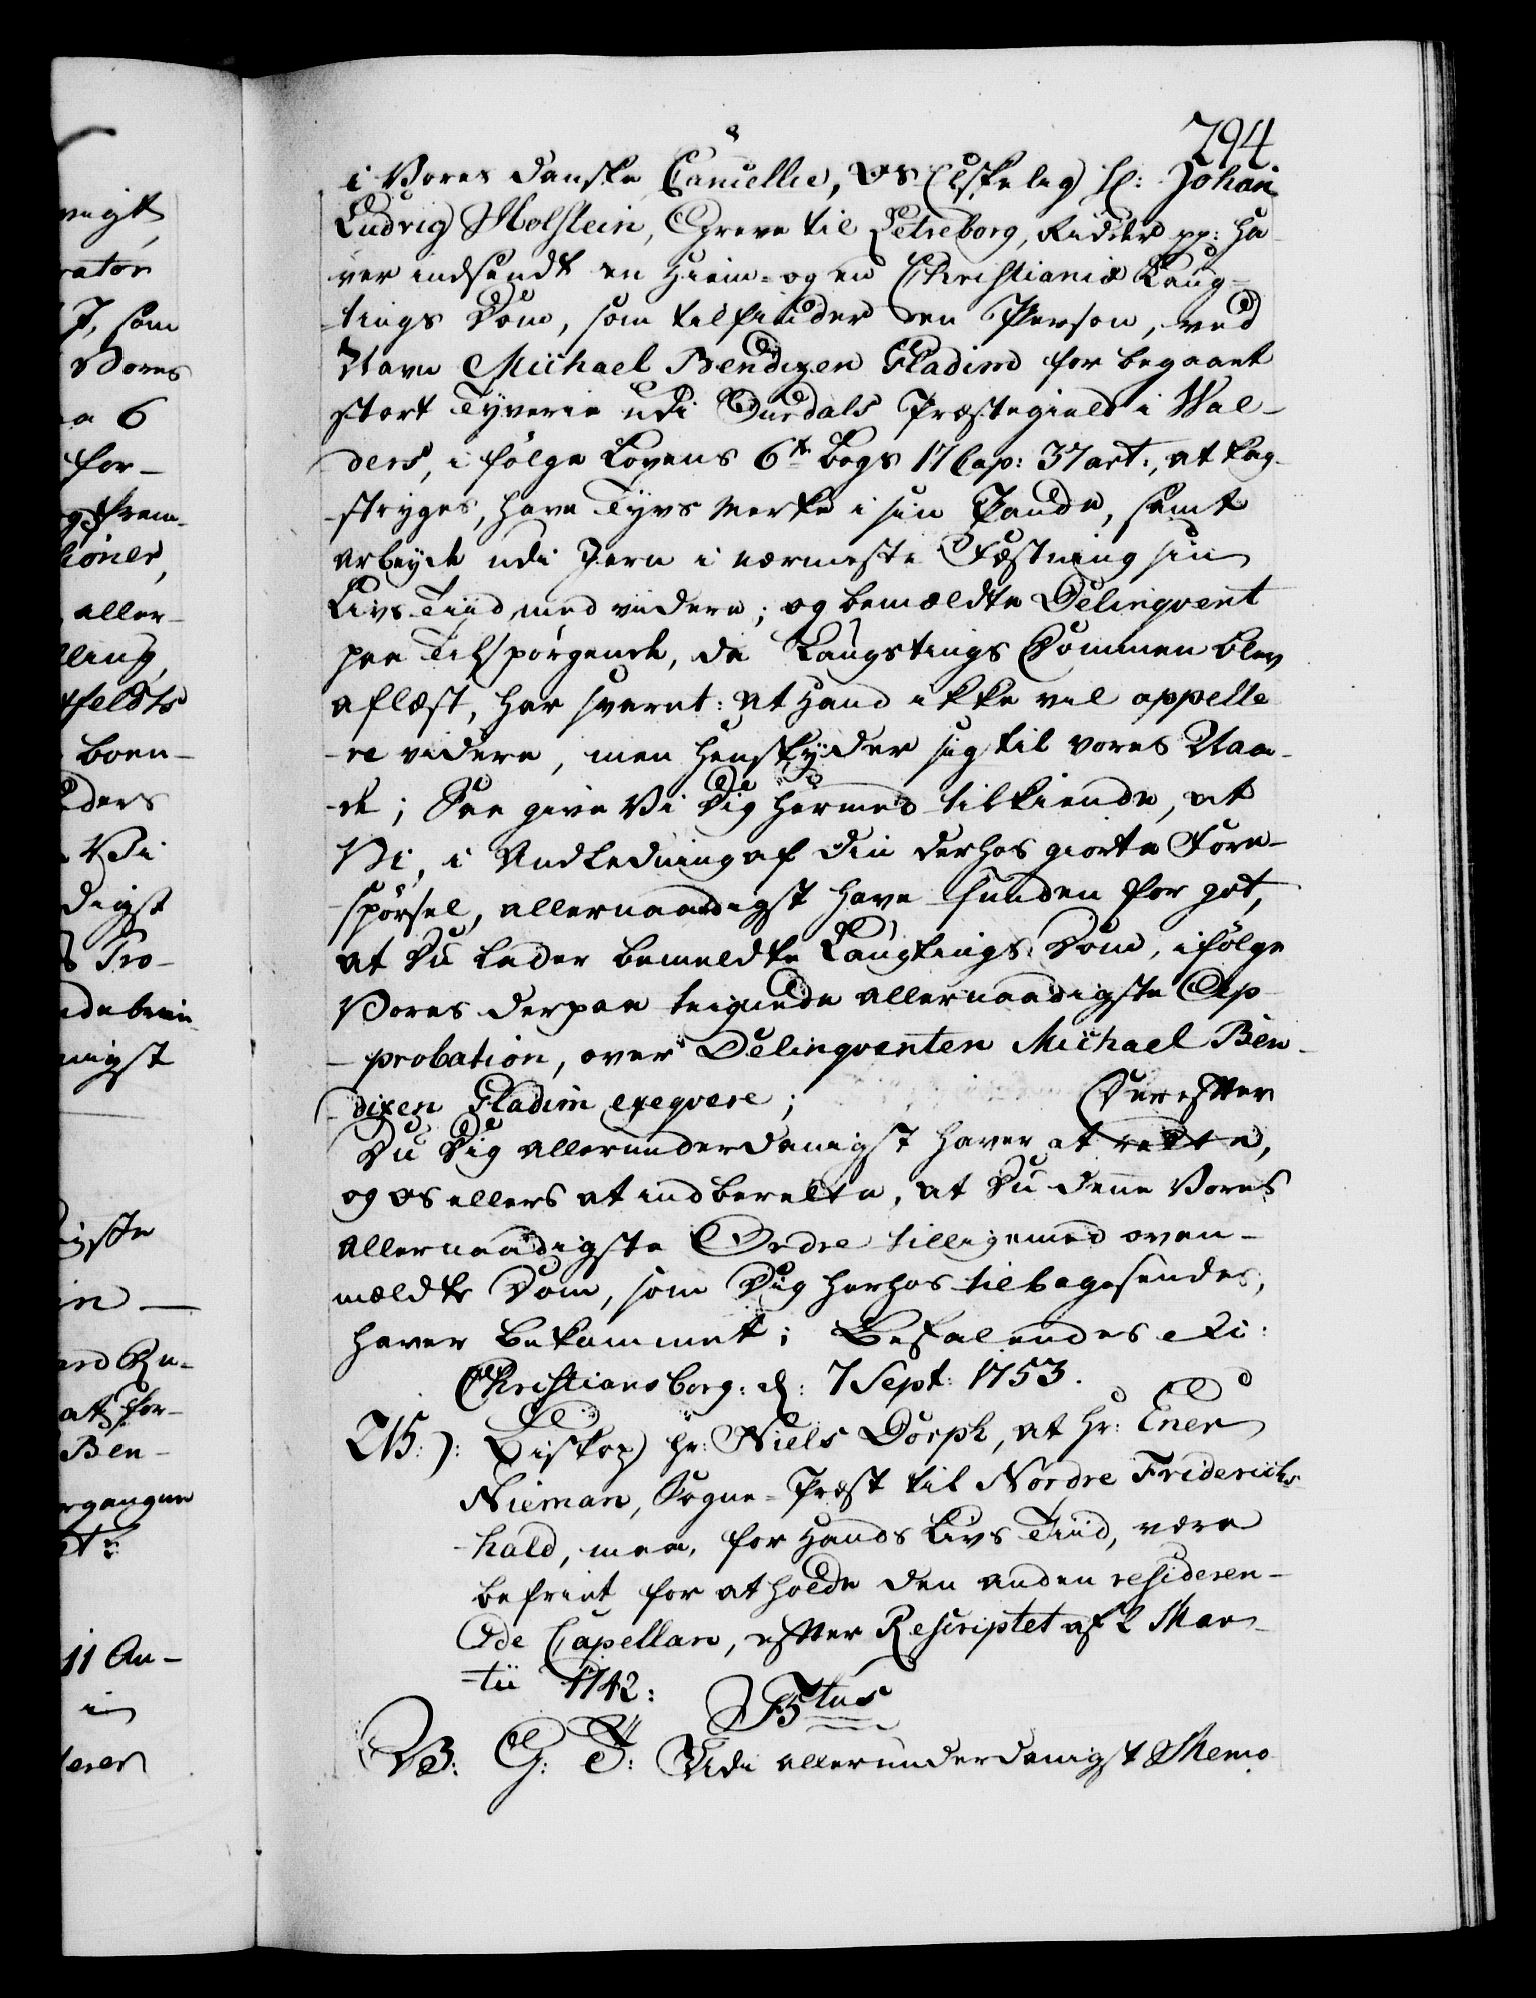 294
i Vores Danske Cancellie, Os Elskelig H: Johan
Ludvig Holstein, Greve til Letreborg, Ridder pp: ha-
ver indsendt en Hiem- og en Christianiæ Laug-
-tings Dom, som tilfinder en Person, ved
Navn Michael Bendixen Gladim for begaaet
stort Tyverie udi Ourdals Præstegield i Wal-
-ders, i følge Lovens 6te Bogs 17 Cap: 37 art:, at kag-
-stryges, have Tyvs Merke i sin Pande, samt
arbeyde udi Jern i nærmeste Fæstning sin
Livs Tiid med videre; og bemældte Delinqvent
paa Tilspørgende, da Laugtings Dommen blev
aflæst, har svaret: at Hand ikke vil appelle
-re videre, men henskyder sig til vores Naa-
-de; Saa give Vi Dig hermed tilkiende, at
Vi, i Andledning af din derhos giorte Fore-
-spørsel, allernaadigst have funden for got,
at Du lader bemeldte Laugtings Dom, i følge
Vores derpaa teignede allernaadigste Ap-
-probation, over Delinqventen Michael Ben-
-dixen Gladim exeqvere; Derefter
Du Dig allerunderdanigst haver at rette,
og os ellers at indberette, at Du denne Vores
allernaadigste Ordre tilligemed oven-
mældte Dom, som Dig herhos tilbagesendes,
haver bekommet; Befalendes etc:
Christiansborg: d: 7 Sept: 1753.
215:): Biskop hr: Niels Dorph, at Hr: Ener
Nieman, Sogne-Præst til Nordre Friderichs-
-hald, maa, for Hands Livs Tiid, være
befriet for at holde den anden resideren-
de Capellan, efter Rescriptet af 2 Mar-
-tii 1742:
F5tus
V: G: T: Udi allerunderdanigst Memo-